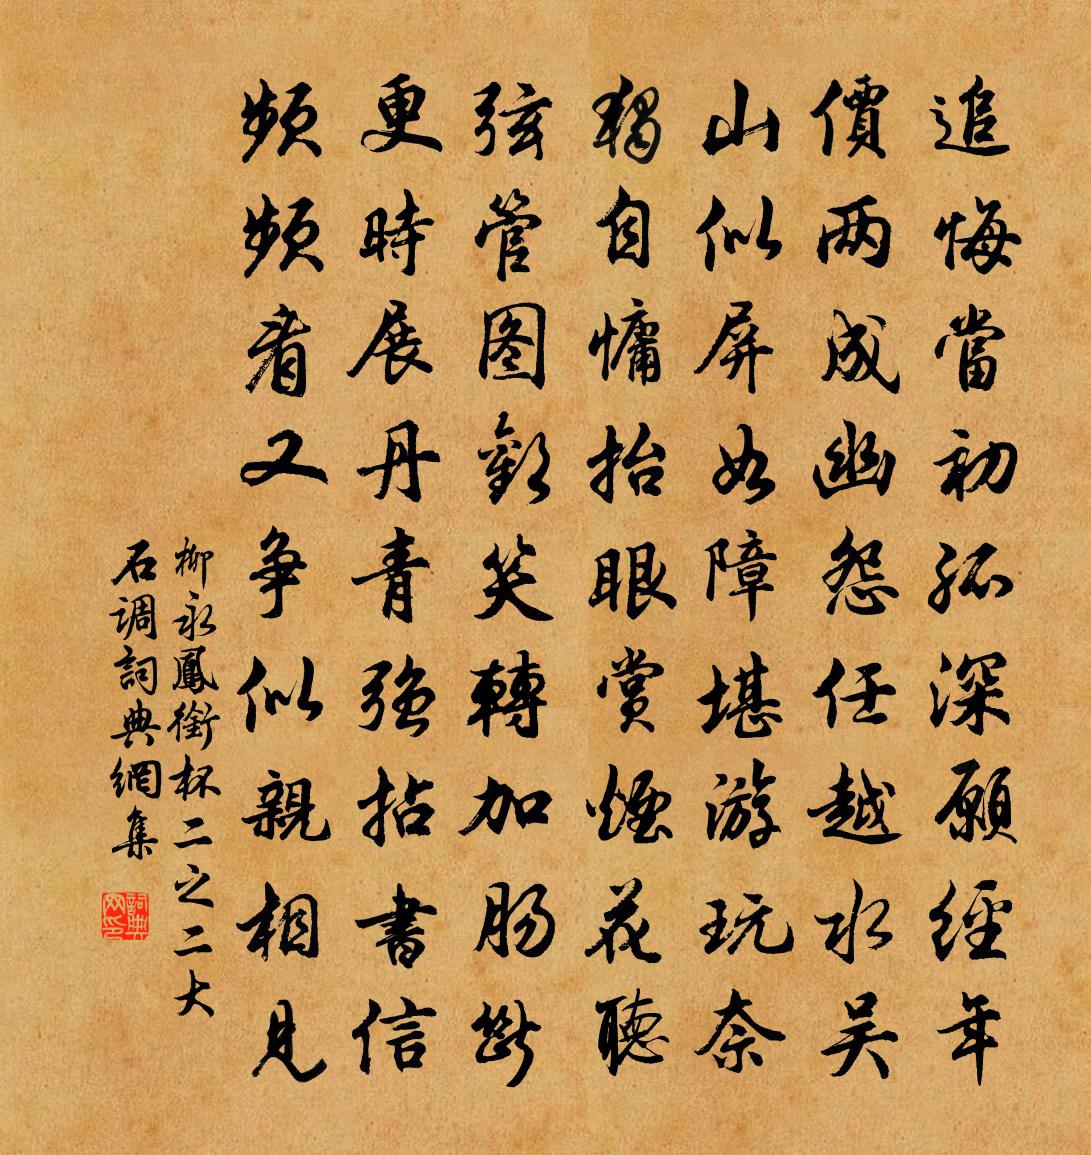 追悔當初孤深願經年
價两成幽怨任越水吴
山似屏如障堪游玩奈
獨自慵抬眼賞煙花聽
弦管图歡笑轉加肠斷
更時展丹青强拈書信
頻頻看又争似親相見
柳永鳳銜杯二之二大
石調詞典網集
詞典网印